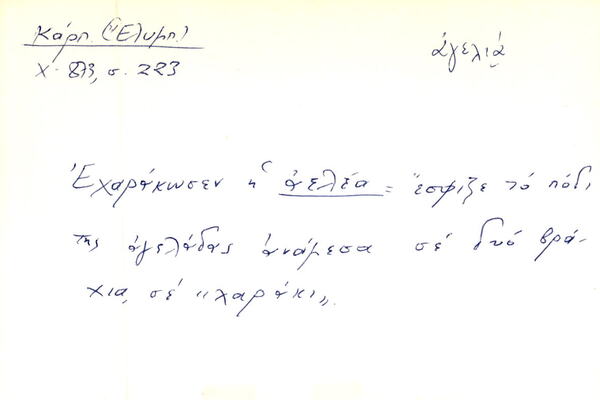 Κάρπ. (Ἔλυμπ.)
χ. 873, σ. 223
ἀγελιά
Ἐχαράκωσεν ἡ ἀελέα = ἔσφιξε τό πόδι
της ἀγελάδας ἀνάμεσα σέ δυό βρά-
χια, σέ "χαράκι".